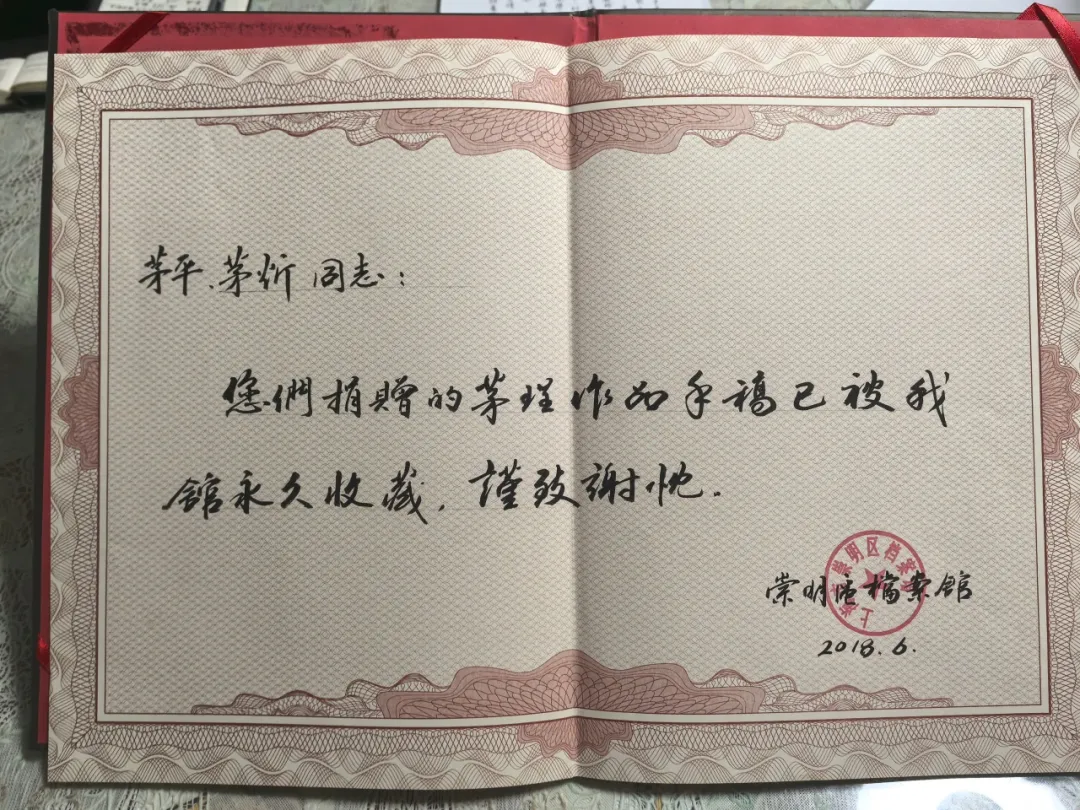 茅平、茅炘 同志：
您們捐贈的茅珵作品手稿已被我
館永久收藏，謹致謝忱.
崇明區檔案館
2018.6.
上海市崇明区档案馆